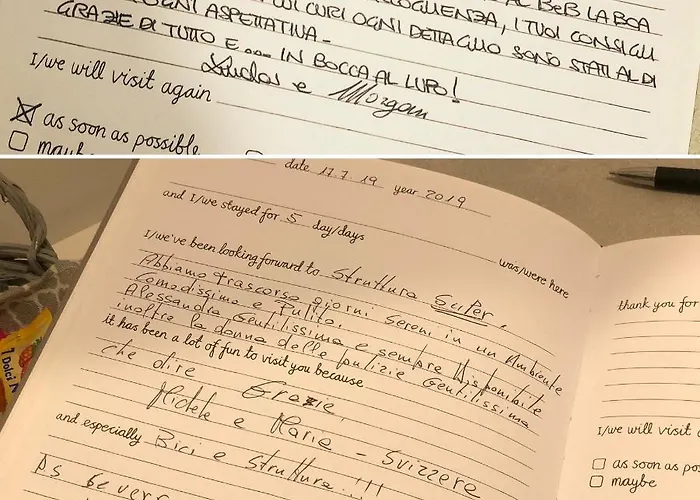 AL BeB LA BOA
CUI CURI OGNI DETTAGLIO SONO STATI AL DI
OGNI ASPETTATIVA -
GRAZIE DI TUTTO E... IN BOCCA AL LUPO!
e Morgan
I/we will visit again
as soon as possible
maybe
date 17.7.19 year 2019
and I/we stayed for 5 day/days
was/were here
I/we've been looking forward to Struttura Super,
Abbiamo trascorso giorni sereni in un Ambiente
Comodissimo e Pulito.
Alessandra Gentilissima e sempre Disponibile
inoltre la donna delle pulizie Gentilissima
it has been a lot of fun to visit you because
che dire Grazie,
Michele e Maria - Svizzere
and especially Bici e Struttura !!!
thank you for
I/we will visit
as soon as po
maybe
1 Dolci